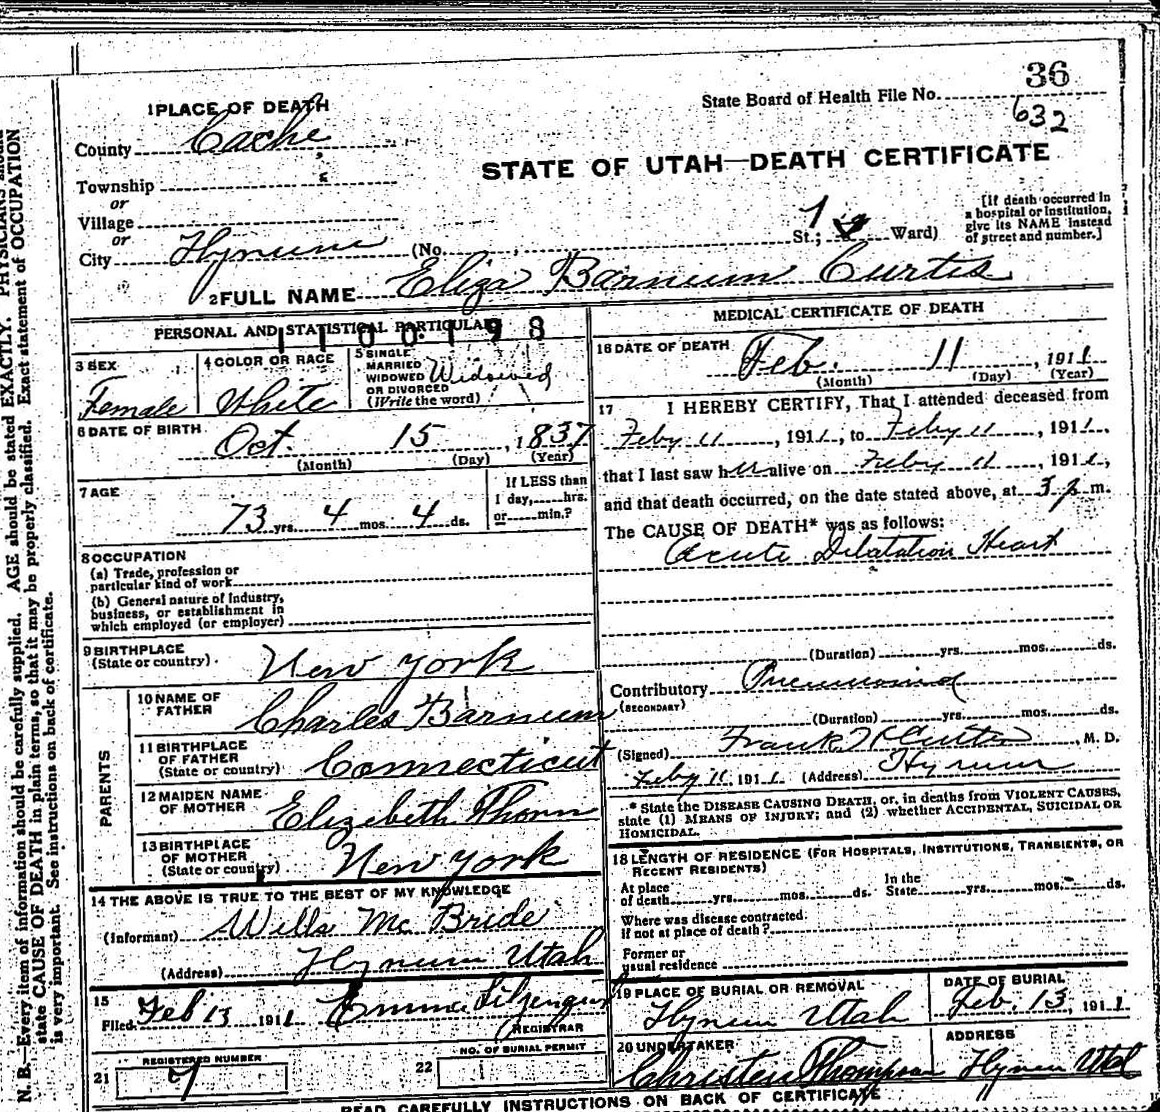 36
State Board of Health File No.
632
1 PLACE OF DEATH
County Cache
STATE OF UTAH—DEATH CERTIFICATE
Township
or
Village
or
City Hyrum (No. St.; 1 Ward)
[If death occurred in
a hospital or institution,
give its NAME instead
of street and number.]
2 FULL NAME Eliza Barnum Curtis
PERSONAL AND STATISTICAL PARTICULARS
1100198
3 SEX
Female
4 COLOR OR RACE
White
5 SINGLE
MARRIED
WIDOWED
OR DIVORCED
(Write the word)
Widowed
6 DATE OF BIRTH
Oct. 15, 1837
(Month) (Day) (Year)
7 AGE
73 yrs. 4 mos. 4 ds.
If LESS than
1 day, hrs.
or min.?
8 OCCUPATION
(a) Trade, profession or
particular kind of work
(b) General nature of Industry,
business, or establishment in
which employed (or employer)
9 BIRTHPLACE
(State or country)
New York
PARENTS
10 NAME OF
FATHER
Charles Barnum
11 BIRTHPLACE
OF FATHER
(State or country)
Connecticut
12 MAIDEN NAME
OF MOTHER
Elizebeth Thorn
13 BIRTHPLACE
OF MOTHER
(State or country)
New York
14 THE ABOVE IS TRUE TO THE BEST OF MY KNOWLEDGE
(Informant) Wills Mc Bride
(Address) Hyrum Utah
15
Filed Feb 13 1911 Emma
REGISTRAR
21 REGISTERED NUMBER
7
22 NO. OF BURIAL PERMIT
MEDICAL CERTIFICATE OF DEATH
16 DATE OF DEATH
Feb. 11, 1911
(Month) (Day) (Year)
17 I HEREBY CERTIFY, That I attended deceased from
Feby 11, 1911, to Feby 11, 1911,
that I last saw her alive on Feby 11, 1911,
and that death occurred, on the date stated above, at 3 p m.
The CAUSE OF DEATH* was as follows:
Acute Dilatation Heart
(Duration) yrs. mos. ds.
Contributory Pneumonia
(SECONDARY)
(Duration) yrs. mos. ds.
(Signed) Frank, M. D.
Feby 11, 1911 (Address) Hyrum
* State the DISEASE CAUSING DEATH, or, in deaths from VIOLENT CAUSES,
state (1) MEANS OF INJURY; and (2) whether ACCIDENTAL, SUICIDAL OR
HOMICIDAL.
18 LENGTH OF RESIDENCE (FOR HOSPITALS, INSTITUTIONS, TRANSIENTS, OR
RECENT RESIDENTS)
At place
of death yrs. mos. ds.
In the
State yrs. mos. ds.
Where was disease contracted
if not at place of death?
Former or
usual residence
19 PLACE OF BURIAL OR REMOVAL
Hyrum Utah
DATE OF BURIAL
Feb. 13, 1911
20 UNDERTAKER
Christen Thompson
ADDRESS
Hyrum Utah
READ CAREFULLY INSTRUCTIONS ON BACK OF CERTIFICATE
N. B.—Every item of information should be carefully supplied. AGE should be stated EXACTLY. PHYSICIANS should
state CAUSE OF DEATH in plain terms, so that it may be properly classified. Exact statement of OCCUPATION
is very important. See instructions on back of certificate.